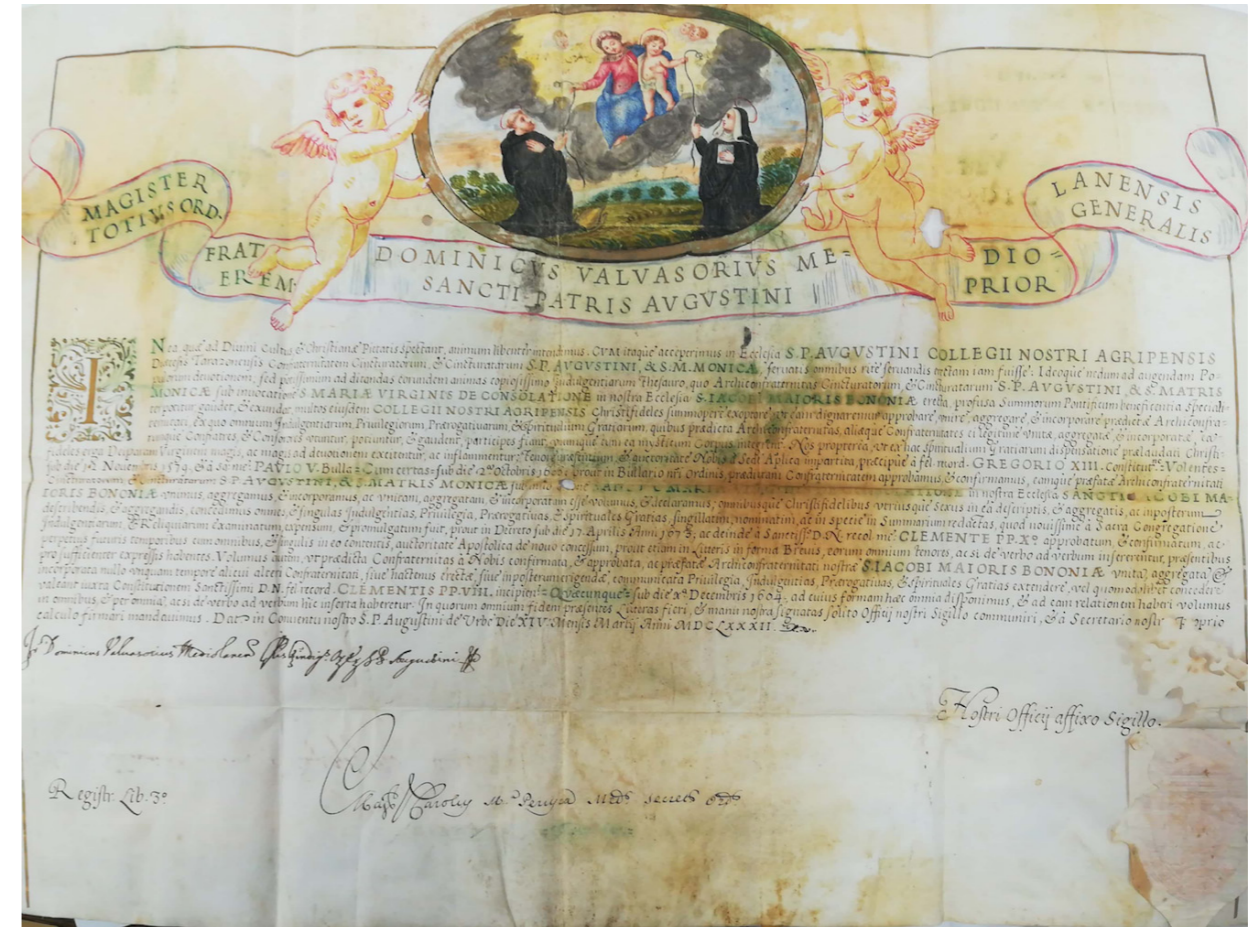 MAGISTER
TOTIVS ORD.
FRAT
EREM.
DOMINICVS VALVASORIVS ME=
SANCTI PATRIS AVGVSTINI
DIO=
PRIOR
LANENSIS
GENERALIS
Nea, quæ ad Divini Cultus, & Christianæ Pietatis spectant, animum libenter intendimus. CVM itaque acceperimus in Ecclesia S.P. AVGVSTINI COLLEGII NOSTRI AGRIPENSIS
Diœcesis Tarazonensis Confraternitatem Cincturatorum, & Cincturatarum S.P. AVGVSTINI, & S.M. MONICÆ, servatis omnibus rite servandis erectam iam fuisse. Ideoque nedum ad augendam Po-
pulorum devotionem, sed potissimum ad ditandas eorundem animas copiosissimo Indulgentiarum Thesauro, quo Archiconfraternitas Cincturatorum, & Cincturatarum S.P. AVGVSTINI, & S. MATRIS
MONICÆ sub invocatione S. MARIÆ VIRGINIS DE CONSOLATIONE in nostra Ecclesia S. IACOBI MAIORIS BONONIÆ erecta, profusa Summorum Pontificum beneficentia speciali-
ter potitur, gaudet, & exundat, multos eiusdem COLLEGII NOSTRI AGRIPENSIS Christifideles summopere exoptare, ut eam dignaremur approbare, unire, aggregare, & incorporare prædictæ Archiconfra-
ternitati, ex quo omnium Indulgentiarum, Privilegiorum, Prærogativarum, & Spiritualium Gratiarum, quibus prædicta Archiconfraternitas, aliæque Confraternitates ei legitime unitæ, aggregatæ, & incorporatæ,
tumque Confratres, & Consorores utuntur, potiuntur, & gaudent, participes fiant, unumque cum ea mysticum Corpus integrent. Nos propterea, ut ex hac spiritualium Gratiarum dispensatione prælaudati Christi-
fideles erga Deiparam Virginem magis, ac magis ad devotionem excitentur, ac inflammentur, tenore præsentium, & auctoritate Nobis a Sede Aplica impartita, præcipue a fel. mord. GREGORIO XIII. Constitut. Volentes=
sub die Novembris 1579. & a sa: me: PAVLO V. Bulla= Cum certas= sub die Octobris prout in Bullario nri Ordinis, prædictam Confraternitatem approbamus, & confirmamus, eamque præfatæ Archiconfraternitati
Cincturatorum, & Cincturatarum S.P. AVGVSTINI, & S. MATRIS MONICÆ in nostra Ecclesia SANCTI IACOBI MA=
IORIS BONONIÆ unimus, aggregamus, & incorporamus, ac unitam, aggregatam, & incorporatam esse volumus, & declaramus, omnibusque Christifidelibus utriusque Sexus in ea descriptis, & aggregatis, ac imposterum
describendis, & aggregandis, concedimus omnes, & singulas Indulgentias, Privilegia, Prærogativas, & Spirituales Gratias, singillatim, nominatim, ac in specie in Summarium redactas, quod novissime a Sacra Congregatione
Indulgentiarum, & Reliquiarum examinatum, expensum, & promulgatum fuit, prout in Decreto sub die 17. Aprilis Anni ac deinde a Sanctiss. D.N. recol. me: CLEMENTE PP. X. approbatum, & confirmatum, ac
perpetuis futuris temporibus cum omnibus, & singulis in eo contentis, auctoritate Apostolica de novo concessum, prout etiam in Literis in forma Brevis, eorum omnium tenores, ac si de verbo ad verbum insererentur, præsentibus
pro sufficienter expressis habentes. Volumus autem, ut prædicta Confraternitas a Nobis confirmata, & approbata, ac præfatæ Archiconfraternitati nostræ S. IACOBI MAIORIS BONONIÆ unita, aggregata, &
incorporata nullo unquam tempore alicui alteri Confraternitati, sive hactenus erectæ, sive imposterum erigendæ, communicata Privilegia, Indulgentias, Prærogativas, & Spirituales Gratias extendere, vel quomodolibet concedere
valeat, iuxta Constitutionem Sanctissimi D.N. fel. record. CLEMENTIS PP. VIII. incipient= Quæcunque= sub die Decembris 1604. ad cuius formam hæc omnia disponimus, & ad eam relationem haberi volumus
in omnibus, & per omnia, ac si de verbo ad verbum hic inserta haberetur. In quorum omnium fidem præsentes Literas fieri, & manu nostra signatas solito Officij nostri Sigillo communiri, & a Secretario nostr proprio
calculo firmari mandavimus. Dat. in Conventu nostro S.P. Augustini de Urbe Die XIV. Mensis Martij Anni MDCLXXXII.
Dominicus Valvasorius Mediolanen Augustini
Nostri Officij affixo Sigillo.
Registr. Lib. 3º
Carolus Mª secret Ord